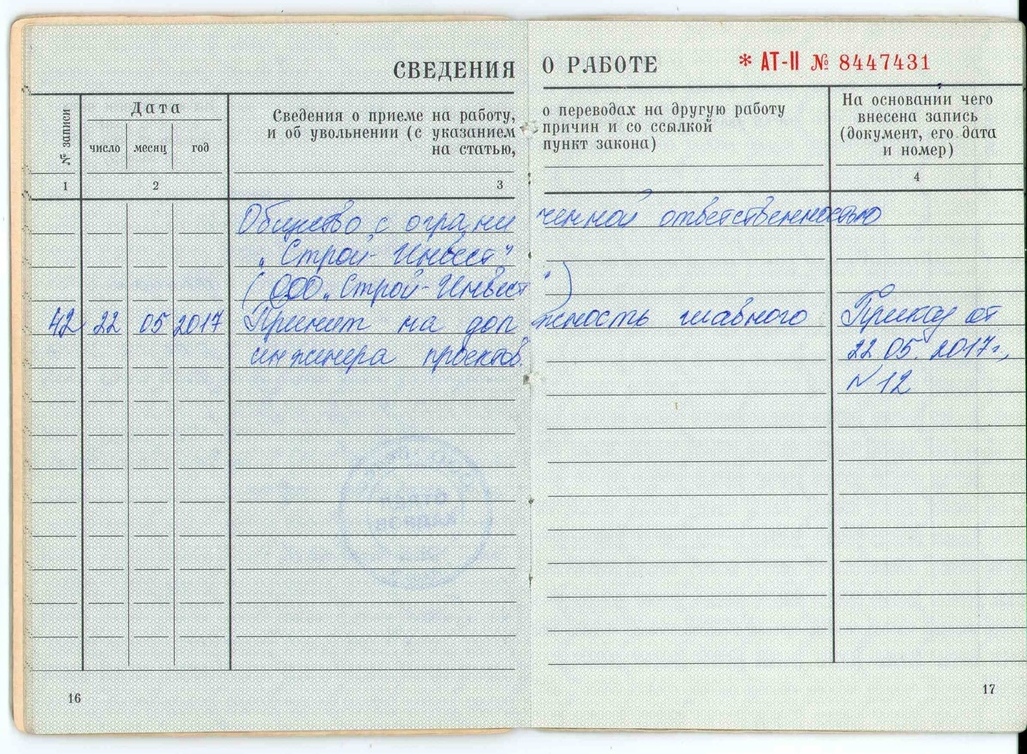 СВЕДЕНИЯ О РАБОТЕ * АТ-II № 8447431
№ записи
Дата
число месяц год
Сведения о приеме на работу, о переводах на другую работу
и об увольнении (с указанием причин и со ссылкой
на статью, пункт закона)
На основании чего
внесена запись
(документ, его дата
и номер)
1 2 3 4
Общество с ограниченной ответственностью
"Строй-Инвест"
(ООО "Строй-Инвест")
42 22 05 2017 Принят на должность главного Приказ от
инженера проектов. 22.05.2017г,
N 12
16 17